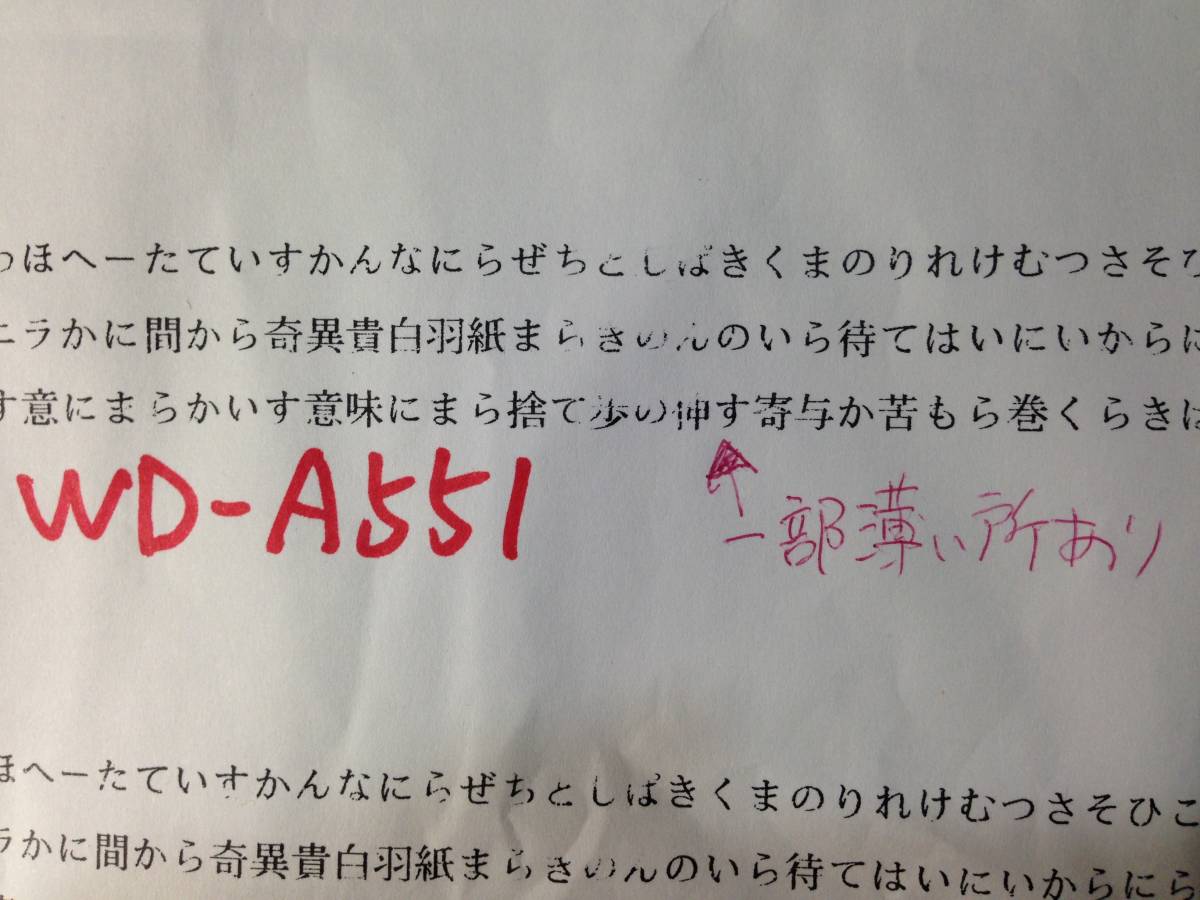 ほへーたていすかんなにらぜちとしぱきくまのりれけむつさそひ
ニラかに間から奇異貴白羽紙まらきめんのいら待てはいにいからに
す意にまらかいす意味にまら捨て歩の伸す寄与か苦もら巻くらきは
WD-A551
一部薄い所あり
ほへーたていすかんなにらぜちとしぱきくまのりれけむつさそひこ
ラかに間から奇異貴白羽紙まらきめんのいら待てはいにいからにら